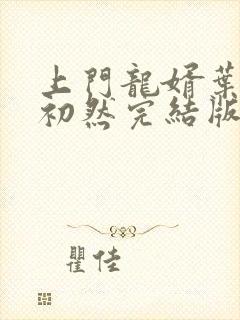 上門龍婿葉
初然完結版
瞿佳